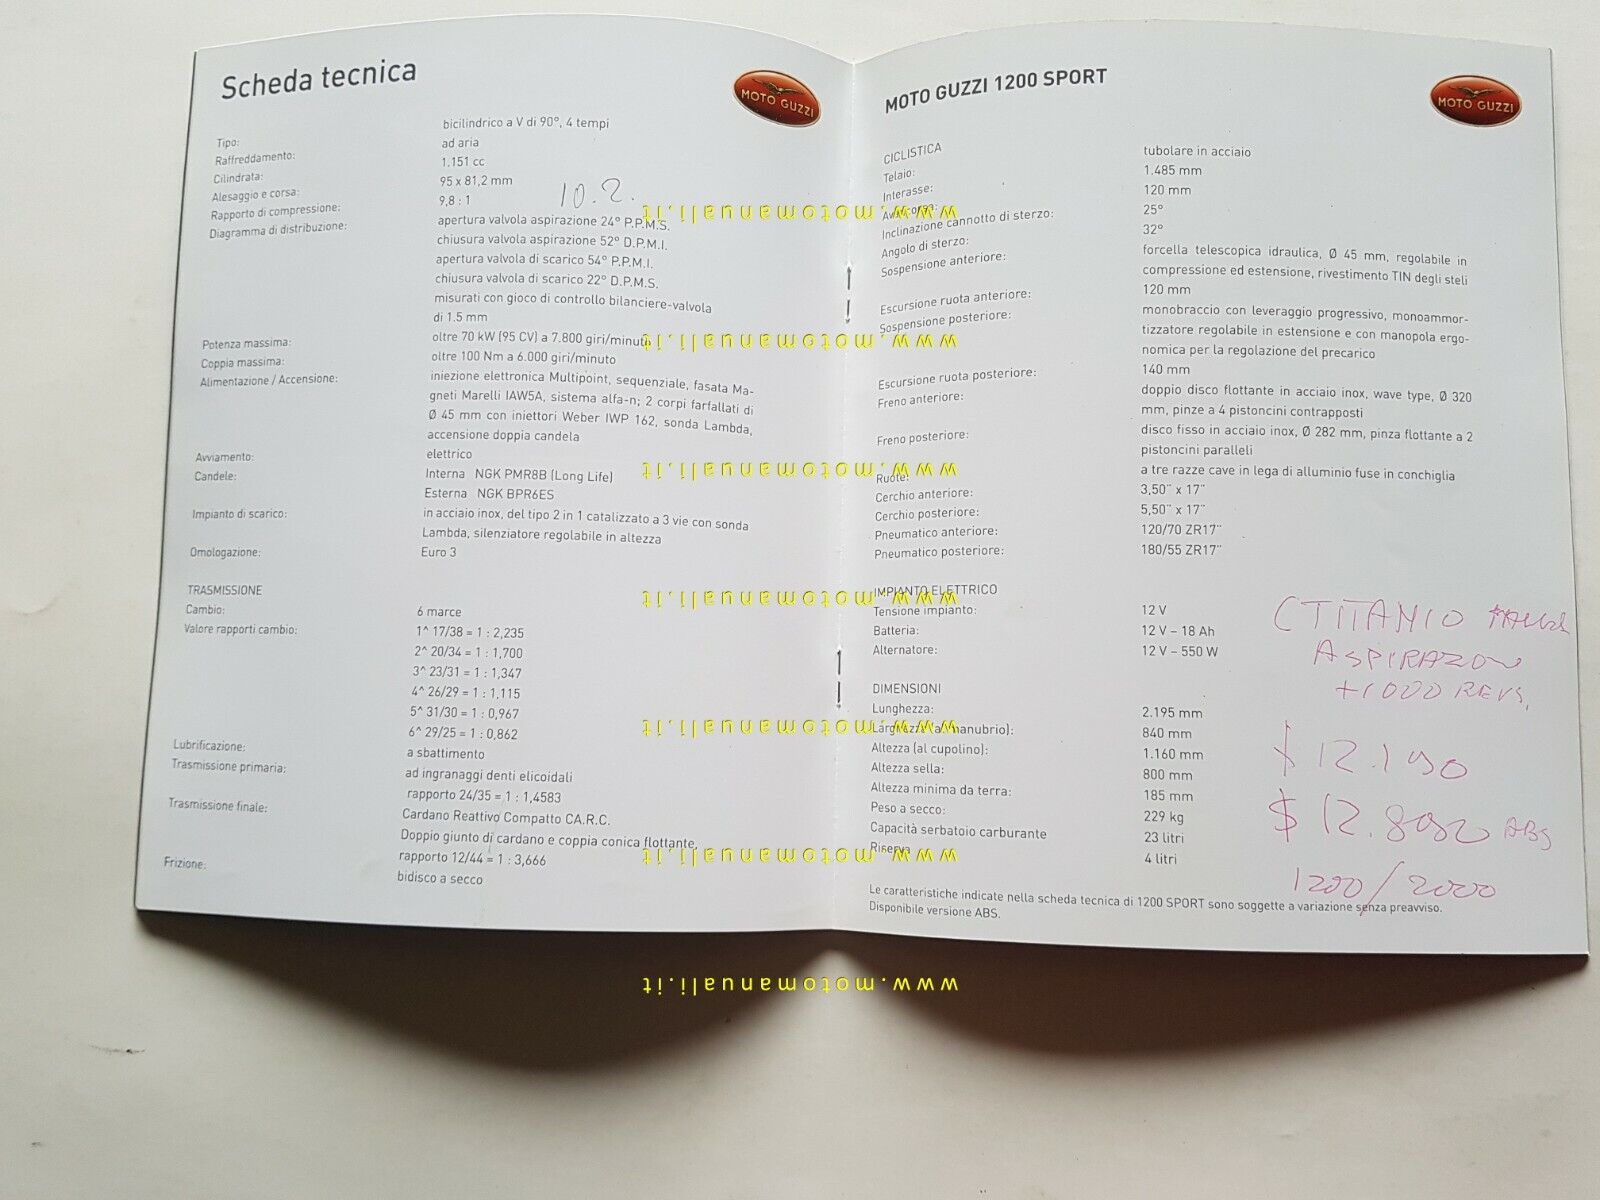 Scheda tecnica
MOTO GUZZI
Tipo: bicilindrico a V di 90°, 4 tempi
Raffreddamento: ad aria
Cilindrata: 1.151 cc
Alesaggio e corsa: 95 x 81,2 mm
Rapporto di compressione: 9,8 : 1 10.2.
Diagramma di distribuzione: apertura valvola aspirazione 24° P.P.M.S.
chiusura valvola aspirazione 52° D.P.M.I.
apertura valvola di scarico 54° P.P.M.I.
chiusura valvola di scarico 22° D.P.M.S.
misurati con gioco di controllo bilanciere-valvola
di 1.5 mm
Potenza massima: oltre 70 kW (95 CV) a 7.800 giri/minuto
Coppia massima: oltre 100 Nm a 6.000 giri/minuto
Alimentazione / Accensione: iniezione elettronica Multipoint, sequenziale, fasata Ma-
gneti Marelli IAW5A, sistema alfa-n; 2 corpi farfallati di
Ø 45 mm con iniettori Weber IWP 162, sonda Lambda,
accensione doppia candela
Avviamento: elettrico
Candele: Interna NGK PMR8B (Long Life)
Esterna NGK BPR6ES
Impianto di scarico: in acciaio inox, del tipo 2 in 1 catalizzato a 3 vie con sonda
Lambda, silenziatore regolabile in altezza
Omologazione: Euro 3
TRASMISSIONE
Cambio: 6 marce
Valore rapporti cambio: 1^ 17/38 = 1 : 2,235
2^ 20/34 = 1 : 1,700
3^ 23/31 = 1 : 1,347
4^ 26/29 = 1 : 1,115
5^ 31/30 = 1 : 0,967
6^ 29/25 = 1 : 0,862
Lubrificazione: a sbattimento
Trasmissione primaria: ad ingranaggi denti elicoidali
rapporto 24/35 = 1 : 1,4583
Trasmissione finale: Cardano Reattivo Compatto CA.R.C.
Doppio giunto di cardano e coppia conica flottante,
rapporto 12/44 = 1 : 3,666
Frizione: bidisco a secco
MOTO GUZZI 1200 SPORT
MOTO GUZZI
CICLISTICA
Telaio: tubolare in acciaio
Interasse: 1.485 mm
Avancorsa: 120 mm
Inclinazione cannotto di sterzo: 25°
Angolo di sterzo: 32°
Sospensione anteriore: forcella telescopica idraulica, Ø 45 mm, regolabile in
compressione ed estensione, rivestimento TIN degli steli
Escursione ruota anteriore: 120 mm
Sospensione posteriore: monobraccio con leveraggio progressivo, monoammor-
tizzatore regolabile in estensione e con manopola ergo-
nomica per la regolazione del precarico
Escursione ruota posteriore: 140 mm
Freno anteriore: doppio disco flottante in acciaio inox, wave type, Ø 320
mm, pinze a 4 pistoncini contrapposti
Freno posteriore: disco fisso in acciaio inox, Ø 282 mm, pinza flottante a 2
pistoncini paralleli
Ruote: a tre razze cave in lega di alluminio fuse in conchiglia
Cerchio anteriore: 3,50" x 17"
Cerchio posteriore: 5,50" x 17"
Pneumatico anteriore: 120/70 ZR17"
Pneumatico posteriore: 180/55 ZR17"
IMPIANTO ELETTRICO
Tensione impianto: 12 V
Batteria: 12 V – 18 Ah
Alternatore: 12 V – 550 W
DIMENSIONI
Lunghezza: 2.195 mm
Larghezza (al manubrio): 840 mm
Altezza (al cupolino): 1.160 mm
Altezza sella: 800 mm
Altezza minima da terra: 185 mm
Peso a secco: 229 kg
Capacità serbatoio carburante 23 litri
Riserva 4 litri
TITANIO
+1000 REVS.
$ 12.190
$ ABS
1200/2000
Le caratteristiche indicate nella scheda tecnica di 1200 SPORT sono soggette a variazione senza preavviso.
Disponibile versione ABS.
www.motomanuali.it
www.motomanuali.it
www.motomanuali.it
www.motomanuali.it
www.motomanuali.it
www.motomanuali.it
www.motomanuali.it